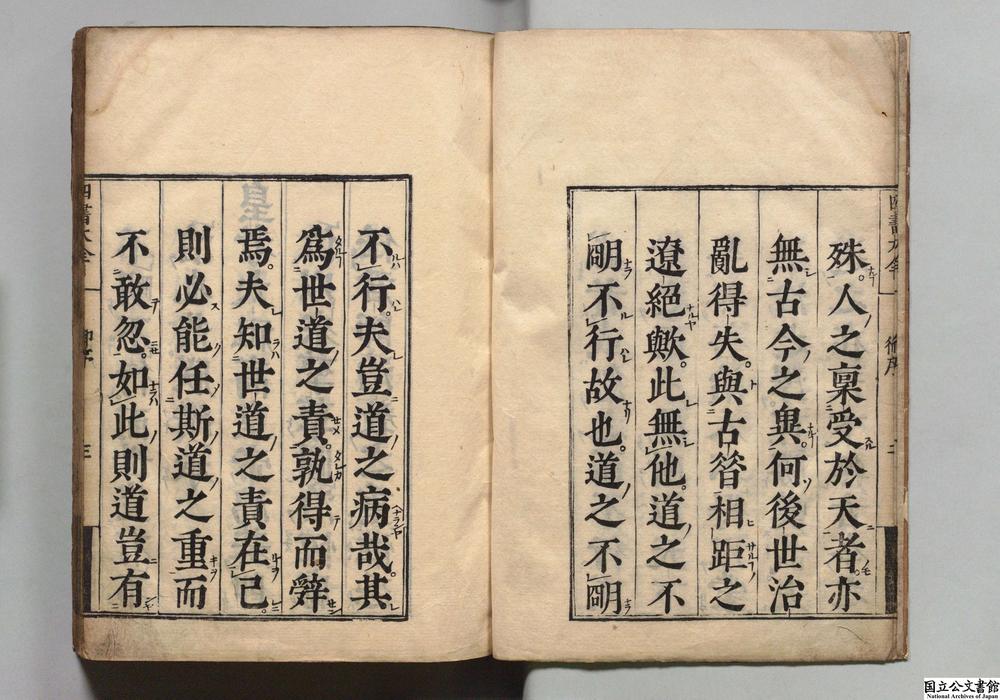 殊。人之稟受於天者。亦
無古今之異。何後世治
亂得失。與古昔相距之
遼絕歟。此無他。道之不
明不行故也。道之不明
不行。夫豈道之病哉。其
爲世道之責。孰得而辭
焉。夫知世道之責在己。
則必能任斯道之重而
不敢忽。如此則道豈有
四書大全
御序
三
国立公文書館
National Archives of Japan